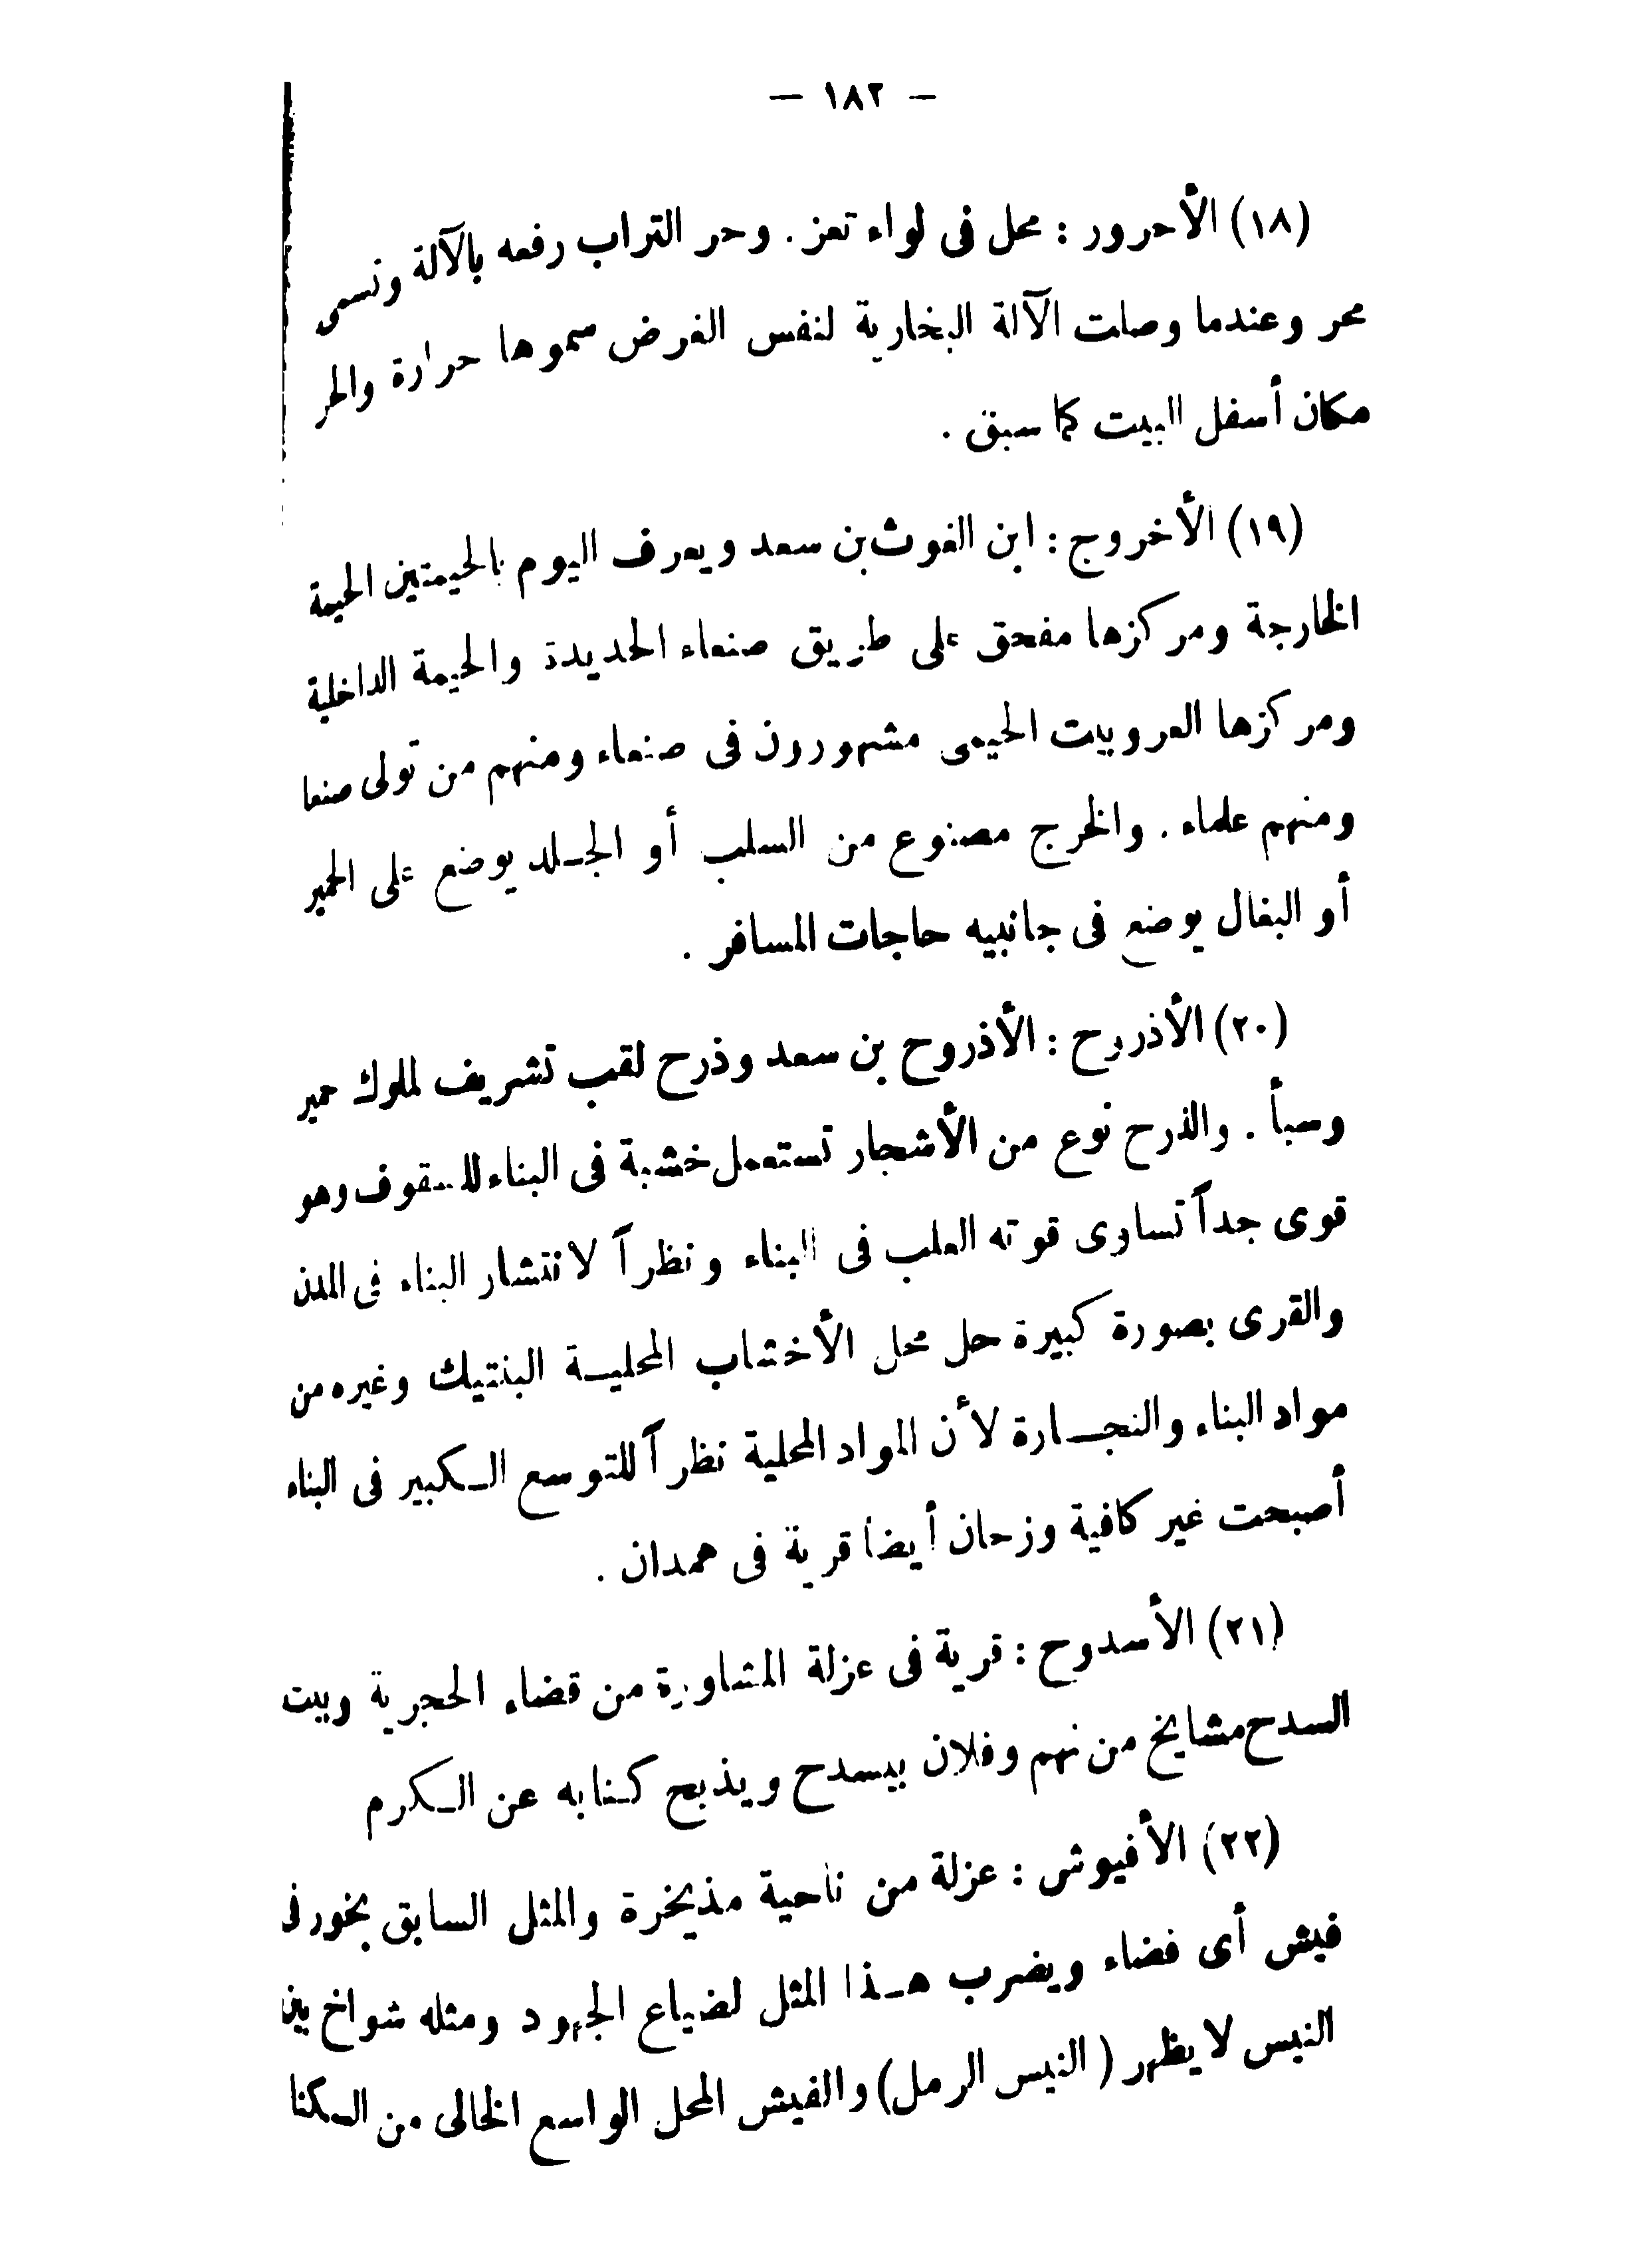 — ١٨٢ —
(١٨) الأحرور : محل فى لواء تعز . وحر التراب رفعه بالآلة ونسمى
محر وعندما وصلت الآلة البخارية لنفس الغرض سموها حرارة والحر
مكان أسفل البيت كما سبق .
(١٩) الأخروج : ابن الغوث بن سعد ويعرف اليوم بالحيمتين الحيمة
الخارجة ومركزها مفحق على طريق صنعاء الحديدة والحيمة الداخلية
ومركزها العر وبيت الحيمى مشهورون فى صنعاء ومنهم من تولى صنعا
ومنهم علماء . والخرج مصنوع من السلب أو الجلد يوضع على الحمير
أو البغال يوضع فى جانبيه حاجات المسافر .
(٢٠) الأذروح : الأذروح بن سعد وذرح لقب تشريف لملوك حمير
وسبأ . والذرح نوع من الأشجار تستعمل خشبة فى البناء للسقوف وهو
قوى جداً تساوى قوته العلب فى البناء ونظراً لانتشار البناء فى المدن
والقرى بصورة كبيرة حل محل الأخشاب المحلية البنتيك وغيره من
مواد البناء والنجارة لأن المواد المحلية نظراً للتوسع الكبير فى البناء
أصبحت غير كافية وزحان أيضا قرية فى همدان .
(٢١) الأسدوح : قرية فى عزلة المشاورة من قضاء الحجرية وبيت
السدح مشايخ من نهم وفلان بيسدح ويذبح كنابه عن الكرم
(٢٢) الأفيوش : عزلة من ناحية مذيخرة والمثل السابق بخور فى
فيش أى فضاء ويضرب هذا المثل لضياع الجهود ومثله شواخ بين
النيس لا يظهر (النيس الرمل) والفيش المحل الواسع الخالى من السكنا